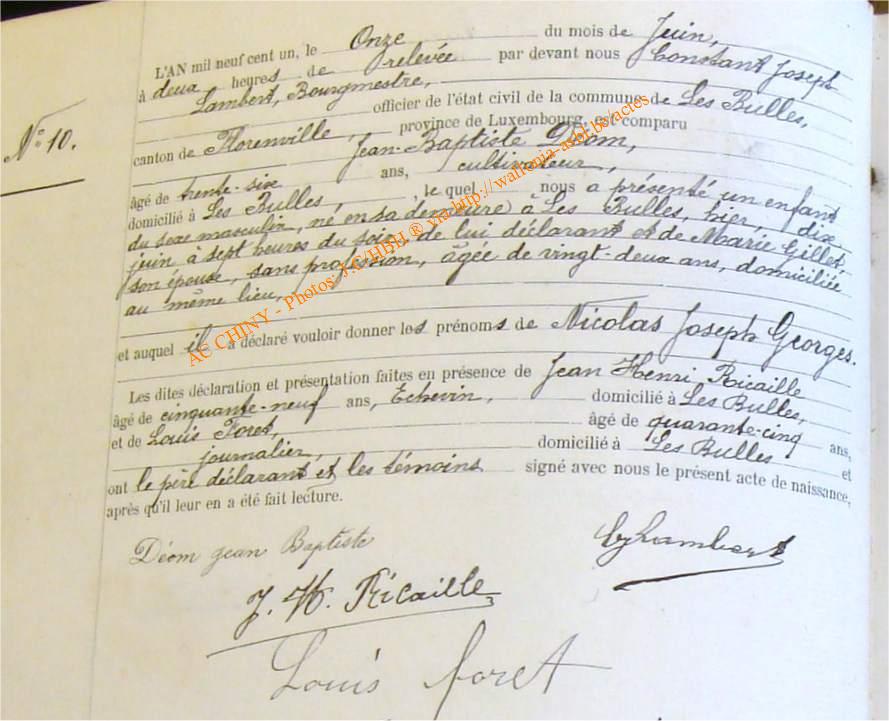 N° 10.
L'AN mil neuf cent un, le Onze du mois de Juin,
à deux heures de relevée par devant nous Constant Joseph
Lambert, Bourgmestre,
officier de l'état civil de la commune de Les Bulles,
canton de Florenville, province de Luxembourg, est comparu
Jean-Baptiste Déom,
âgé de trente-six ans, cultivateur,
domicilié à Les Bulles, le quel nous a présenté un enfant
du sexe masculin, né en sa demeure à Les Bulles, hier, dix
juin à sept heures du soir, de lui déclarant et de Marie Gillet,
son épouse, sans profession, âgée de vingt-deux ans, domiciliée
au même lieu,
et auquel il a déclaré vouloir donner les prénoms de Nicolas Joseph Georges.
Les dites déclaration et présentation faites en présence de Jean Henri Ricaille
âgé de cinquante-neuf ans, Echevin, domicilié à Les Bulles,
et de Louis Foret, âgé de quarante-cinq ans,
journalier, domicilié à Les Bulles et
ont le père déclarant et les témoins signé avec nous le présent acte de naissance,
après qu'il leur en a été fait lecture.
Déom jean Baptiste
CJLambert
J. H. Ricaille
Louis foret
AC CHINY - Photos: J.C/HBH ® via http://wallonia-asbl.be/actes